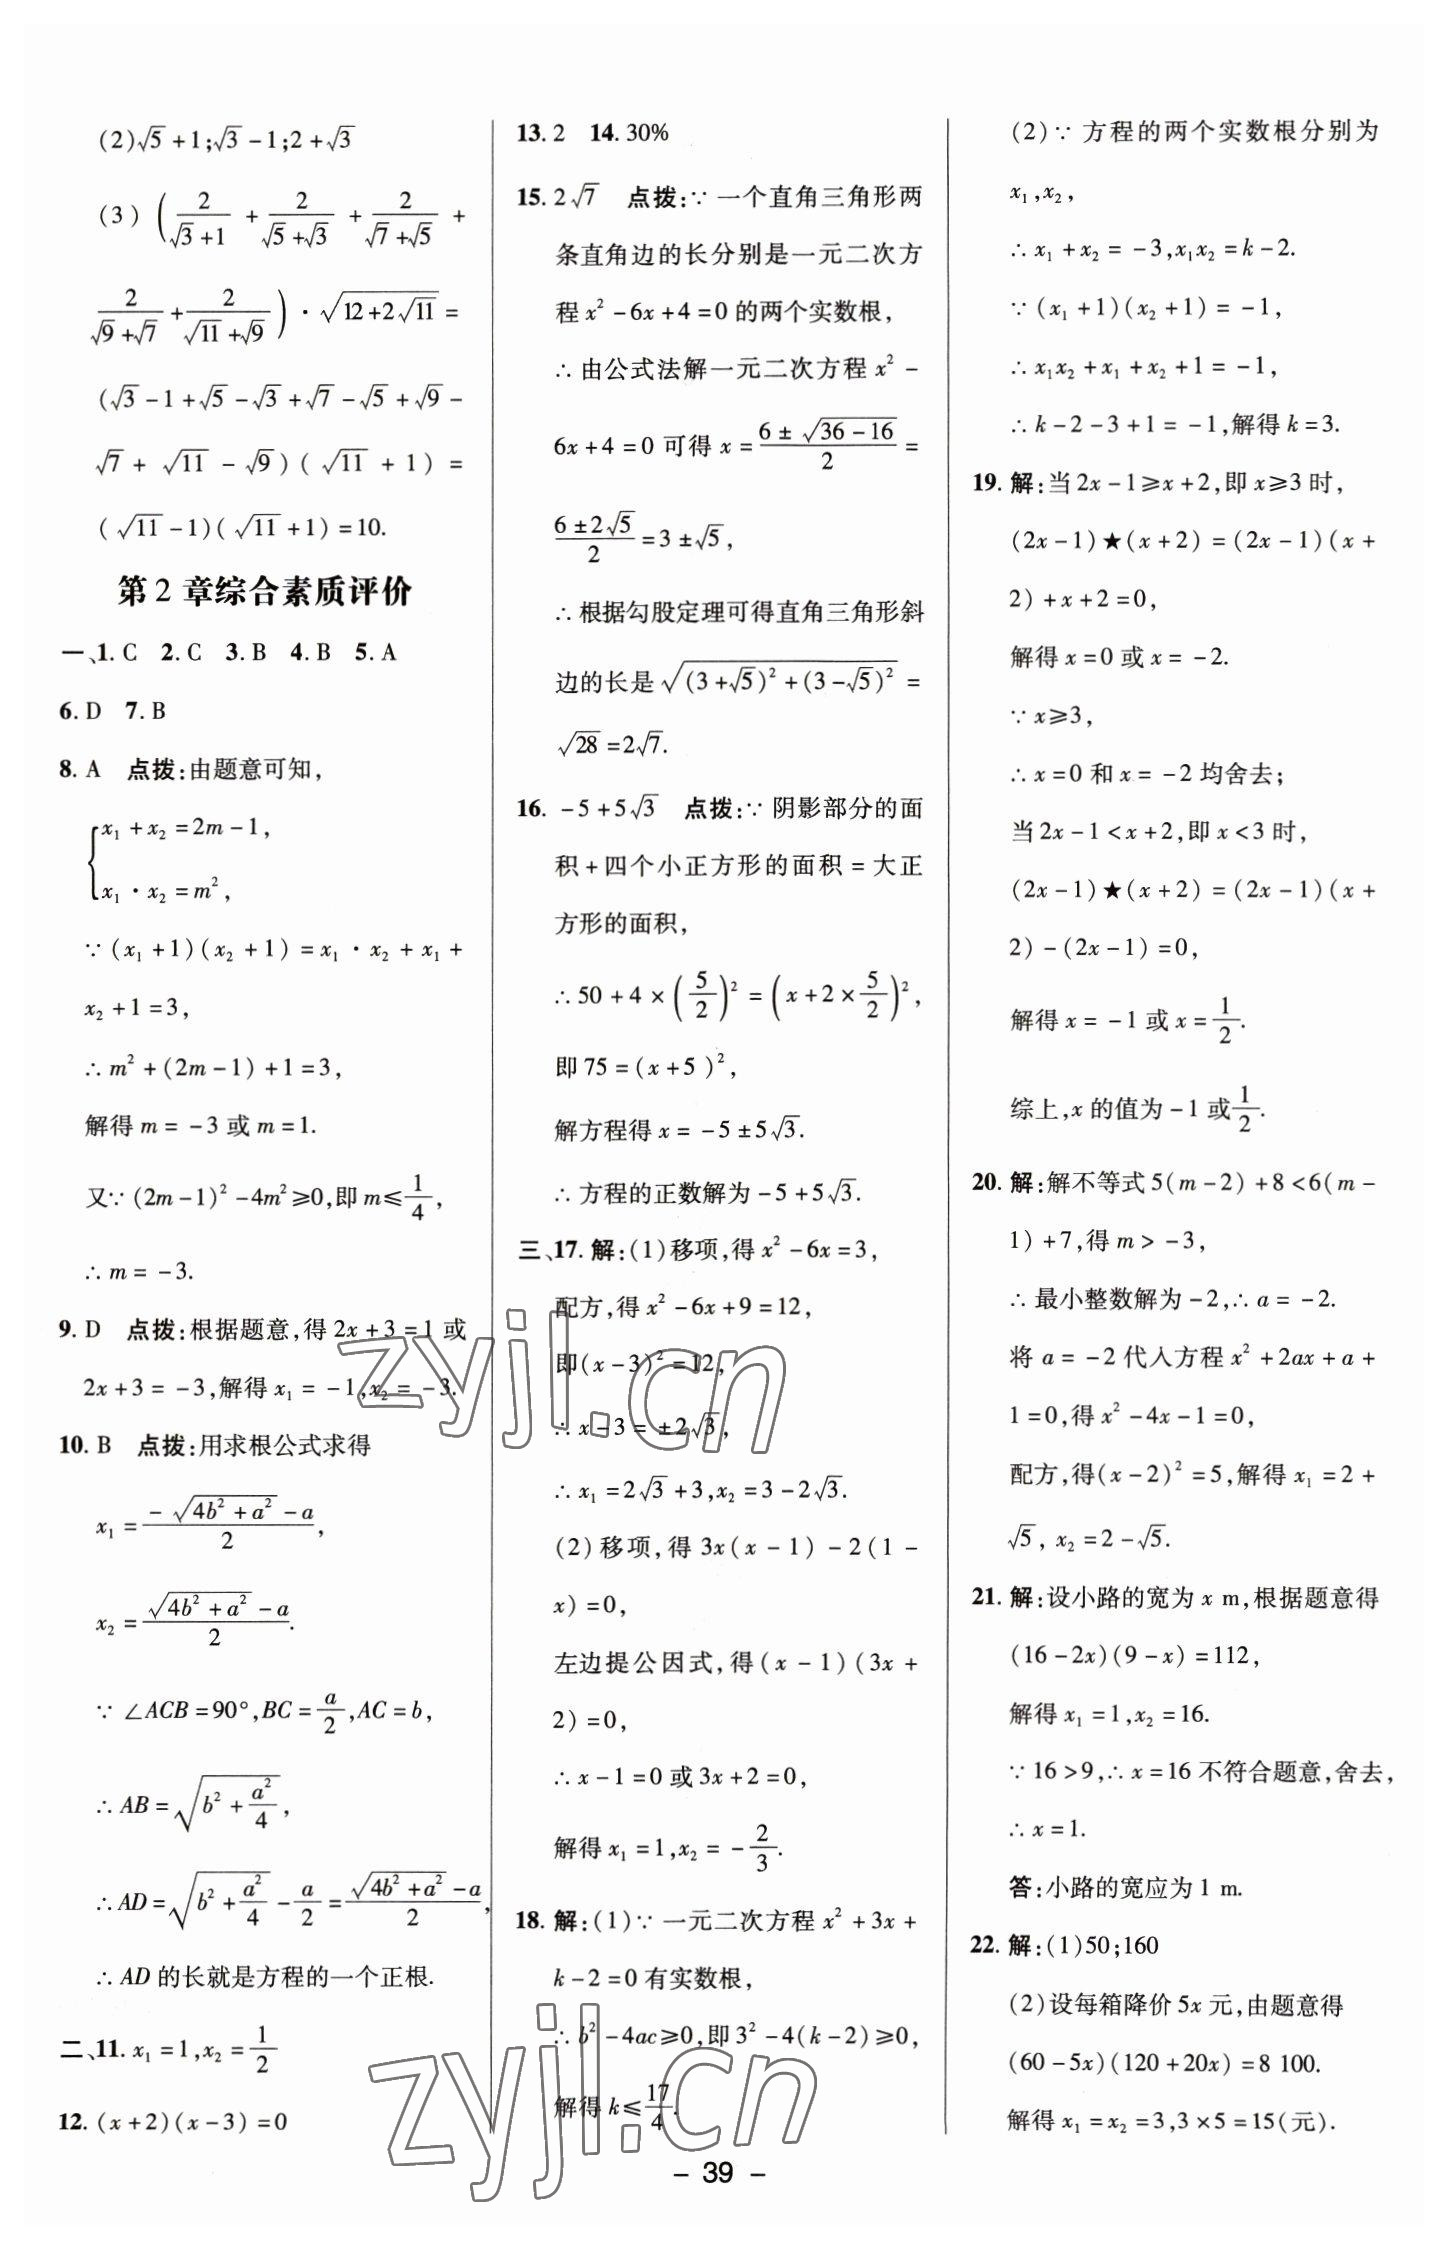 (2)√5+1;√3-1;2+√3
(3)(2/(√3+1)+2/(√5+√3)+2/(√7+√5)+
2/(√9+√7)+2/(√11+√9))·√(12+2√11)=
(√3-1+√5-√3+√7-√5+√9-
√7+√11-√9)(√11+1)=
(√11-1)(√11+1)=10.
第2章综合素质评价
一、1. C 2. C 3. B 4. B 5. A
6. D 7. B
8. A 点拨:由题意可知,
{x₁+x₂=2m-1,
x₁·x₂=m²,
∵(x₁+1)(x₂+1)=x₁·x₂+x₁+
x₂+1=3,
∴m²+(2m-1)+1=3,
解得m=-3或m=1.
又∵(2m-1)²-4m²≥0,即m≤1/4,
∴m=-3.
9. D 点拨:根据题意,得2x+3=1或
2x+3=-3,解得x₁=-1,x₂=-3.
10. B 点拨:用求根公式求得
x₁=(-√(4b²+a²)-a)/2,
x₂=(√(4b²+a²)-a)/2.
∵∠ACB=90°,BC=a/2,AC=b,
∴AB=√(b²+a²/4),
∴AD=√(b²+a²/4)-a/2=(√(4b²+a²)-a)/2,
∴AD的长就是方程的一个正根.
二、11. x₁=1,x₂=1/2
12. (x+2)(x-3)=0
13. 2 14. 30%
15. 2√7 点拨:∵一个直角三角形两
条直角边的长分别是一元二次方
程x²-6x+4=0的两个实数根,
∴由公式法解一元二次方程x²-
6x+4=0可得x=(6±√(36-16))/2=
(6±2√5)/2=3±√5,
∴根据勾股定理可得直角三角形斜
边的长是√((3+√5)²+(3-√5)²)=
√28=2√7.
16. -5+5√3 点拨:∵阴影部分的面
积+四个小正方形的面积=大正
方形的面积,
∴50+4×(5/2)²=(x+2×5/2)²,
即75=(x+5)²,
解方程得x=-5±5√3.
∴方程的正数解为-5+5√3.
三、17. 解:(1)移项,得x²-6x=3,
配方,得x²-6x+9=12,
即(x-3)²=12,
∴x-3=±2√3,
∴x₁=2√3+3,x₂=3-2√3.
(2)移项,得3x(x-1)-2(1-
x)=0,
左边提公因式,得(x-1)(3x+
2)=0,
∴x-1=0或3x+2=0,
解得x₁=1,x₂=-2/3.
18. 解:(1)∵一元二次方程x²+3x+
k-2=0有实数根,
∴b²-4ac≥0,即3²-4(k-2)≥0,
解得k≤17/4.
(2)∵方程的两个实数根分别为
x₁,x₂,
∴x₁+x₂=-3,x₁x₂=k-2.
∵(x₁+1)(x₂+1)=-1,
∴x₁x₂+x₁+x₂+1=-1,
∴k-2-3+1=-1,解得k=3.
19. 解:当2x-1≥x+2,即x≥3时,
(2x-1)★(x+2)=(2x-1)(x+
2)+x+2=0,
解得x=0或x=-2.
∵x≥3,
∴x=0和x=-2均舍去;
当2x-1<x+2,即x<3时,
(2x-1)★(x+2)=(2x-1)(x+
2)-(2x-1)=0,
解得x=-1或x=1/2.
综上,x的值为-1或1/2.
20. 解:解不等式5(m-2)+8<6(m-
1)+7,得m>-3,
∴最小整数解为-2,∴a=-2.
将a=-2代入方程x²+2ax+a+
1=0,得x²-4x-1=0,
配方,得(x-2)²=5,解得x₁=2+
√5,x₂=2-√5.
21. 解:设小路的宽为x m,根据题意得
(16-2x)(9-x)=112,
解得x₁=1,x₂=16.
∵16>9,∴x=16不符合题意,舍去,
∴x=1.
答:小路的宽应为1 m.
22. 解:(1)50;160
(2)设每箱降价5x元,由题意得
(60-5x)(120+20x)=8 100.
解得x₁=x₂=3,3×5=15(元).
zyjl.cn
zyjl.cn
- 39 -